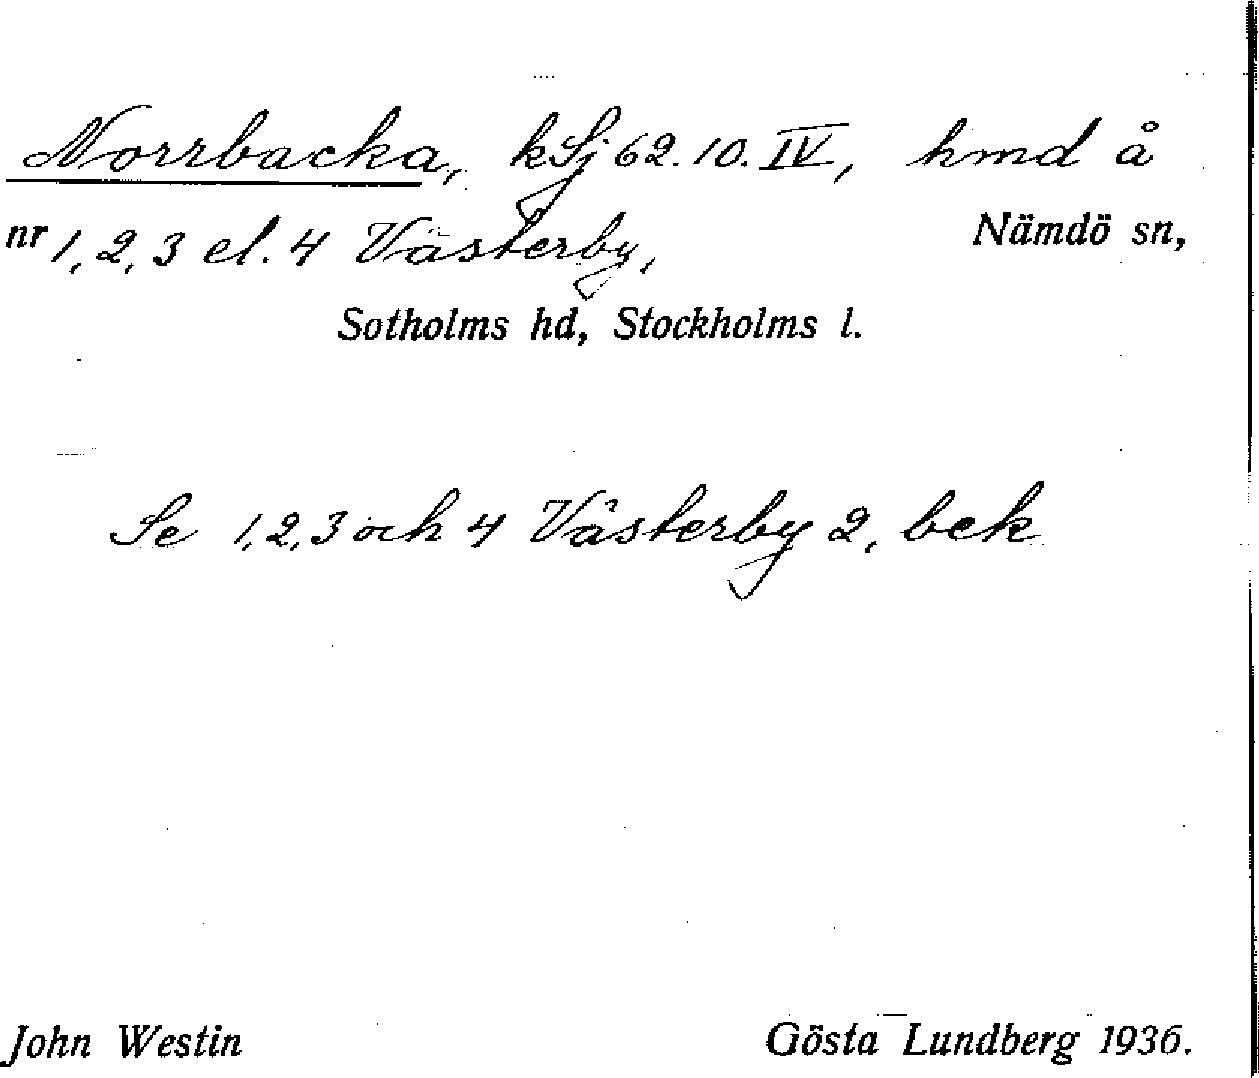 Norrbacka, kSj 62.10.IV, hmd å
nr 1, 2, 3 el. 4 Västerby, Nämdö sn,
Sotholms hd, Stockholms l.
Se 1, 2, 3 och 4 Västerby 2, bek
John Westin Gösta Lundberg 1936.